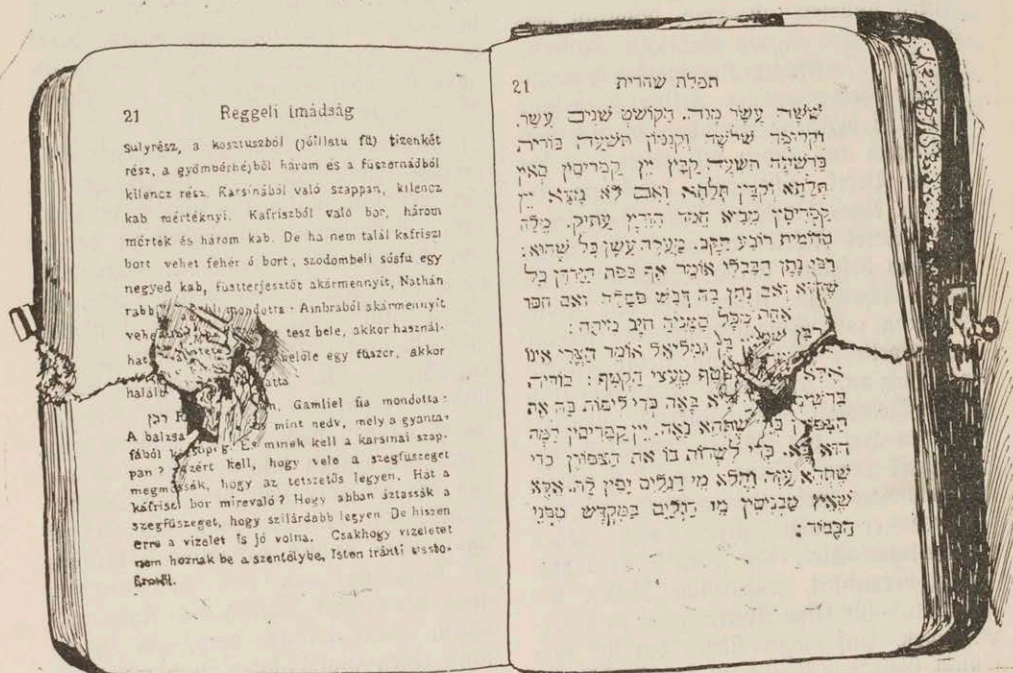 21 Reggeli imádság
sulyrész, a kosztuszból (jóillatu fű) tizenkét
rész, a gyömbérhéjból három és a fűszernádból
kilencz rész. Karsinából való szappan, kilencz
kab mértéknyi. Kafriszból való bor, három
mérték és három kab. De ha nem talál kafriszi
bort vehet fehér ó bort, szodombeli sósfu egy
negyed kab, füstterjesztőt akármennyit, Nathán
rabb mondotta · Ambraból akármennyit
tesz bele, akkor használ-
hat belőle egy fűszer, akkor
halál
רבן Gamliel fia mondotta:
A balzsa mint nedv, mely a gyanta-
fából És minek kell a karsinai szap-
pan? Azért kell, hogy vele a szegfüszeget
megmossák, hogy az tetszetős legyen. Hát a
kafriszi bor mirevaló? Hogy abban áztassák a
szegfüszeget, hogy szilárdabb legyen De hiszen
erre a vizelet is jó volna. Csakhogy vizeletet
nem hoznak be a szentélybe, Isten iránti
21 תפלת שחרית
שִׁשָּׁה עָשָׂר מָנֶה. הַקּוֹשְׁטְ שְׁנֵים עָשָׂר.
וְקִלּוּפָה שְׁלֹשָׁה וְקִנָּמוֹן תִּשְׁעָה. בּוֹרִית
כַּרְשִׁינָה תִּשְׁעָה קַבִּין יֵין קַפְרִיסִין סְאִין
תְּלָתָא וְקַבִּין תְּלָתָא וְאִם לֹא מָצָא יֵין
קַפְרִיסִין מֵבִיא חֲמַר חִוַּרְיָן עַתִּיק. מֶלַח
סְדוֹמִית רוֹבַע הַקָּב. מַעֲלֶה עָשָׁן כָּל שֶׁהוּא:
רַבִּי נָתָן הַבַּבְלִי אוֹמֵר אַף כִּפַּת הַיַּרְדֵּן כָּל
שֶׁהוּא וְאִם נָתַן בָּהּ דְּבַשׁ פְּסָלָהּ. וְאִם חִסַּר
אַחַת מִכָּל סַמָּנֶיהָ חַיָּב מִיתָה:
רַבָּן בֶּן גַּמְלִיאֵל אוֹמֵר הַצֳּרִי אֵינוֹ
אֶלָּא מֵעֲצֵי הַקְּטָף: בּוֹרִית
בָּאָה כְּדֵי לְיַפּוֹת בָּהּ אֶת
הַצִּפֹּרֶן שֶׁתְּהֵא נָאָה. יֵין קַפְרִיסִין לָמָה
הוּא בָא. כְּדֵי לִשְׁרוֹת בּוֹ אֶת הַצִּפֹּרֶן כְּדֵי
שֶׁתְּהֵא עַזָּה וַהֲלֹא מֵי רַגְלַיִם יָפִין לָהּ. אֶלָּא
שֶׁאֵין מַכְנִיסִין מֵי רַגְלַיִם בַּמִּקְדָּשׁ מִפְּנֵי
הַכָּבוֹד: